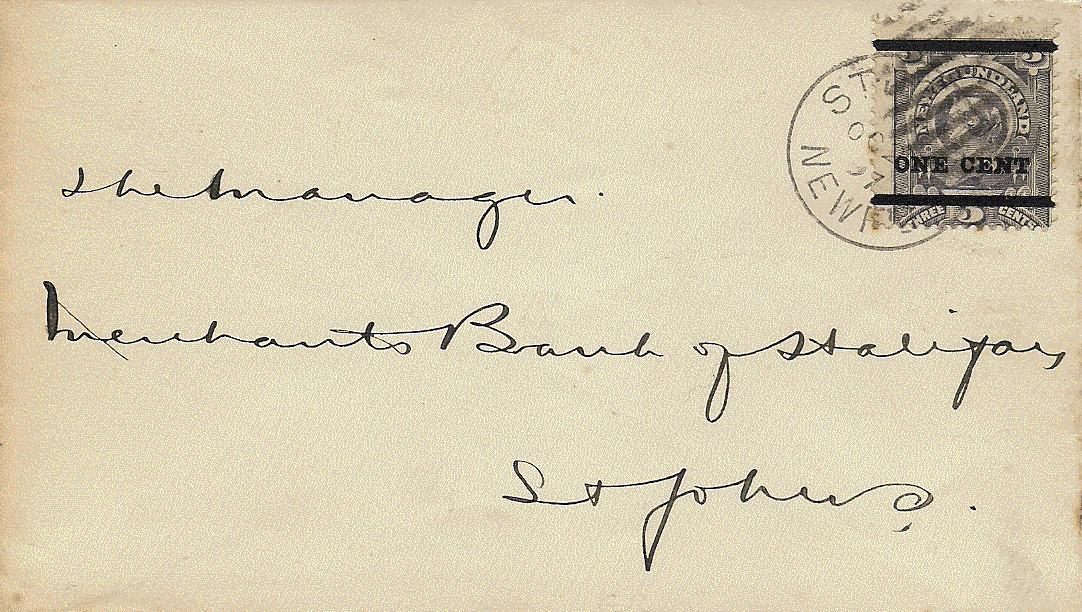 3 3
NEWFOUNDLAND
ONE CENT
THREE 3 CENTS
ST
OC
97
NEWF
The Manager.
Merchants Bank of Halifax
St Johns.